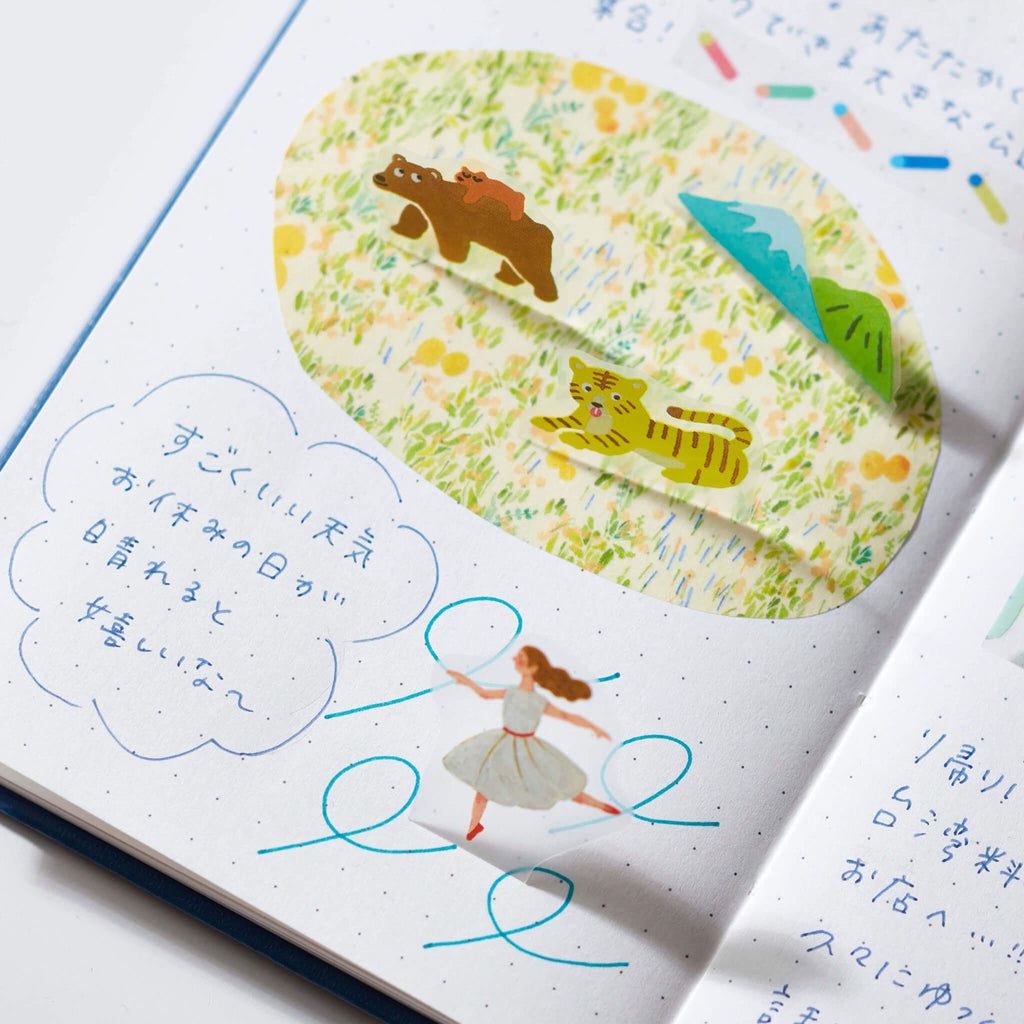 あたたかく
できる大きな公
集合!
すごくいい天気
お休みの日が
晴れると
嬉しいな〜
り帰り
台湾料
お店へ…!!
久々にゆっ
話